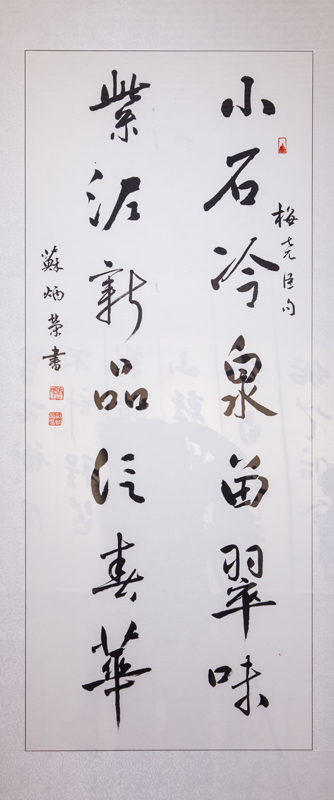 小石冷泉留翠味
梅尧臣句
紫泥新品泛春華
蘇炳荣書